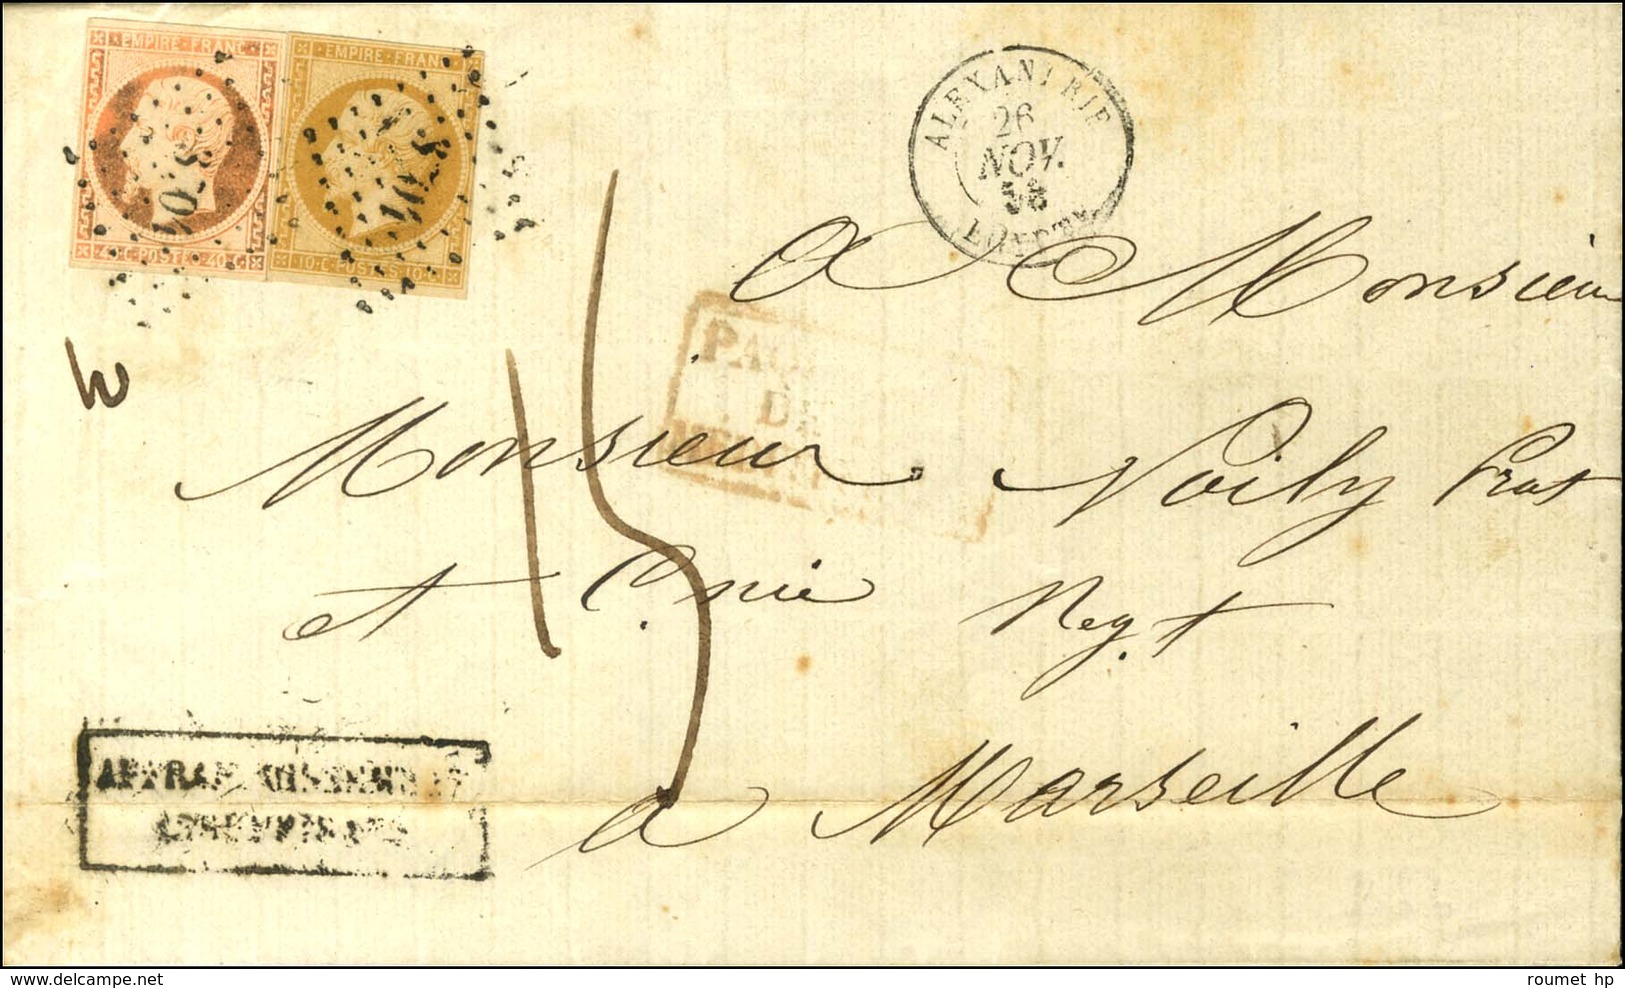 EMPIRE · FRANC ·
40 · C · POSTES · 40 · C ·
3704
EMPIRE · FRANC ·
10 · C · POSTES · 10 · C ·
3704
ALEXANDRIE
26
NOV.
58
EGYPTE
15
PAQ
DE
A Monsieur
Monsieur Voily Prat
et Cnie Negt
a Marseille
AFFRANCHISSEMENT
INSUFFISANT
roumet hp